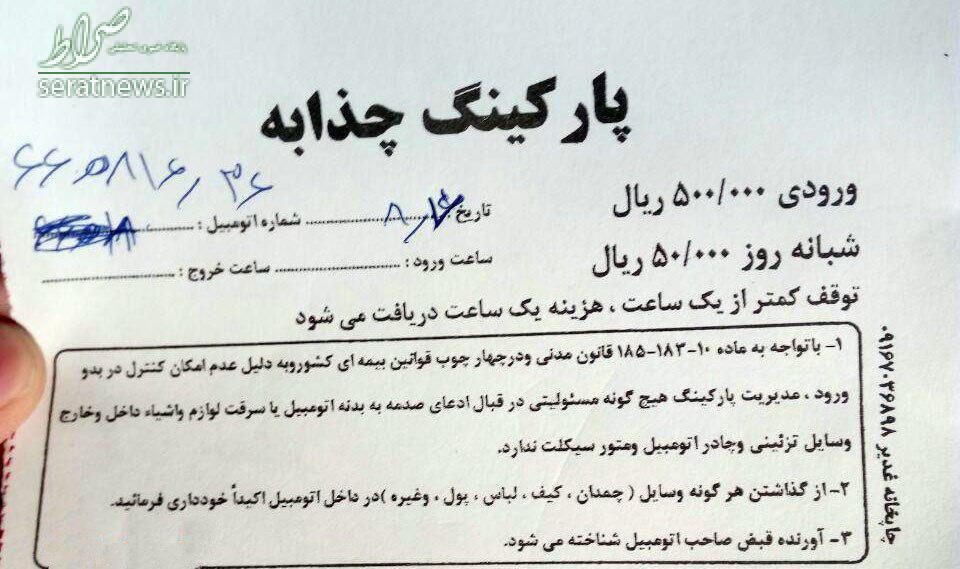 صراط
پایگاه خبری تحلیلی
seratnews.ir
پارکینگ چذابه
۶۶ ۵۸۱۶٫۳۶
ورودی ۵۰۰/۰۰۰ ریال
تاریخ ........ شماره اتومبیل : ........
شبانه روز ۵۰/۰۰۰ ریال
ساعت ورود : ........ ساعت خروج : ........
توقف کمتر از یک ساعت ، هزینه یک ساعت دریافت می شود
۱- باتواجه به ماده ۱۰-۱۸۳-۱۸۵ قانون مدنی ودرچهار چوب قوانین بیمه ای کشوروبه دلیل عدم امکان کنترل در بدو
ورود ، مدیریت پارکینگ هیچ گونه مسئولیتی در قبال ادعای صدمه به بدنه اتومبیل یا سرقت لوازم واشیاء داخل وخارج
وسایل تزئینی وچادر اتومبیل ومتور سیکلت ندارد.
۲- از گذاشتن هر گونه وسایل ( چمدان ، کیف ، لباس ، پول ، وغیره )در داخل اتومبیل اکیداً خودداری فرمائید.
۳- آورنده قبض صاحب اتومبیل شناخته می شود.
چاپخانه غدیر ۰۹۱۶۷۰۳۶۸۹۸